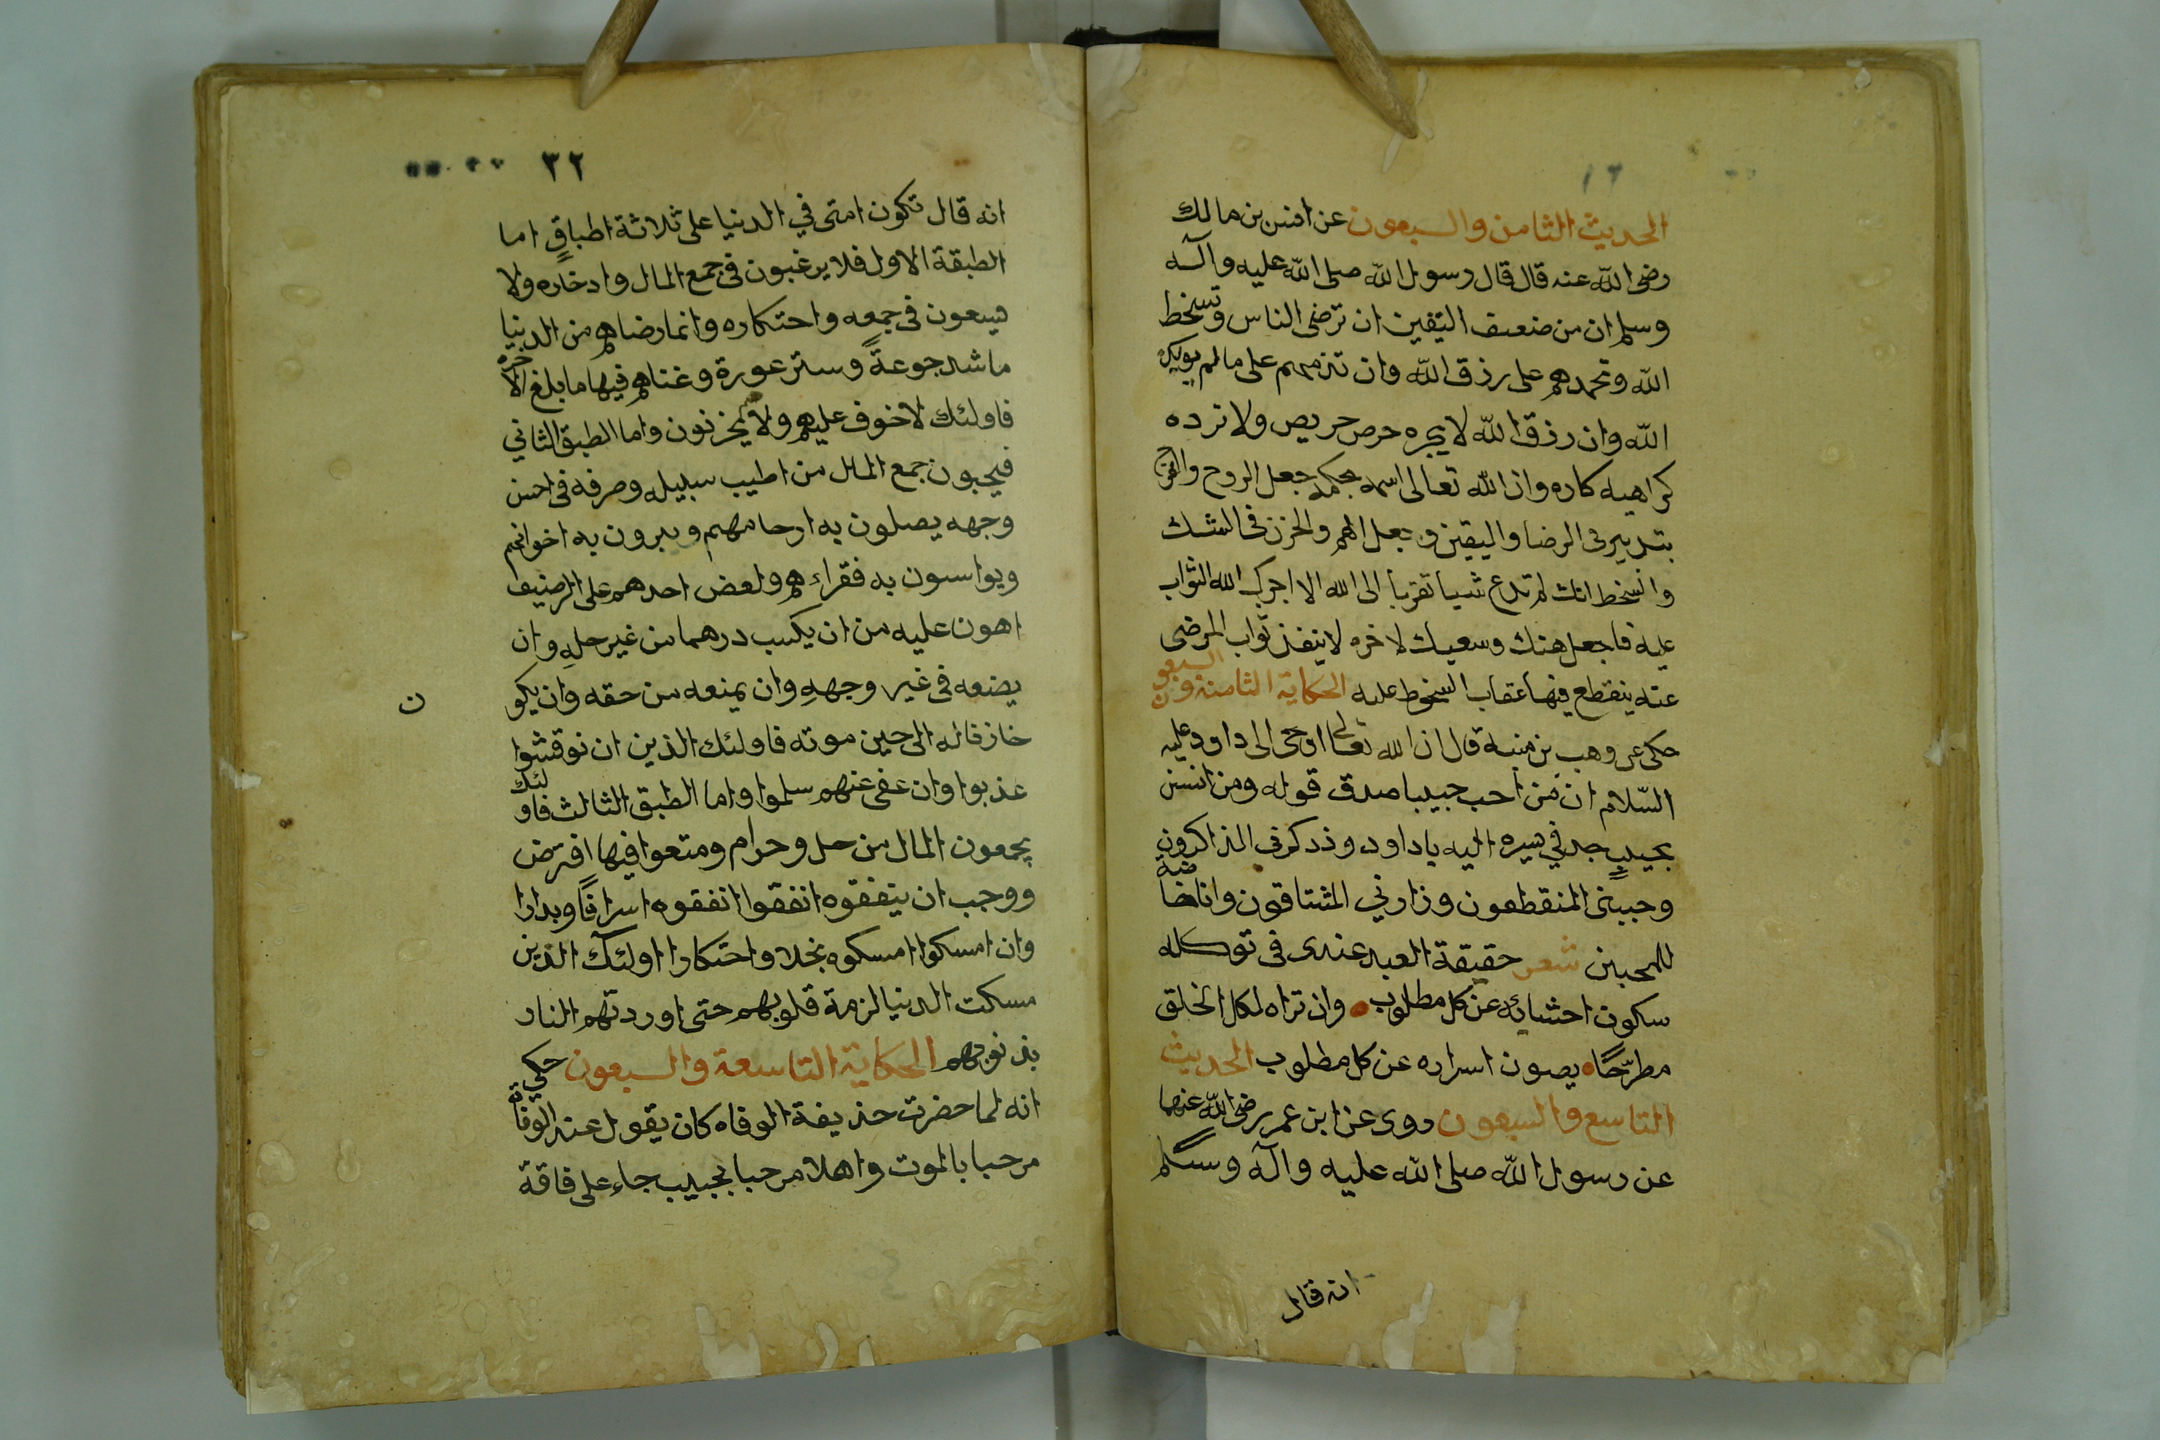 الحديث الثامن والسبعون عن انس بن مالك
رضى الله عنه قال قال رسول الله صلى الله عليه وآله
وسلم ان من ضعف اليقين ان ترضى الناس وتسخط
الله وتحمدهم على رزق الله وان تذمهم على مالم يوتك
الله وان رزق الله لا يجره حرص حريص ولا ترده
كراهيه كاره وان الله تعالى اسمه بحكمه جعل الروح والفرح
بتدبير فى الرضا واليقين وجعل الهم والحزن فى الشك
والسخط انك لم تدع شيا تقربا الى الله الا اجرك الله الثواب
عليه فاجعل همك وسعيك لاخره لا ينفذ ثواب المرضى
عنه ينقطع فيها عقاب السخوط عليه الحكاية الثامنة والسبعون
حكى عن وهب بن منبه قال ان الله تعالى اوحى الى داود عليه
السلام ان من احب حبيبا صدق قوله ومن انس
بحبيب جد في سيره اليه ياداود وذكرى الذاكرون
وحببنى المنقطعون وزارني المشتاقون وانا خاصة
للمحبين شعر حقيقة العبد عندى فى توكله
سكون احشائه عن كل مطلوب وان تراه لكل الخلق
مطرحا يصون اسراره عن كل مطلوب الحديث
التاسع والسبعون روى عن ابن عمر رضى الله عنهما
عن رسول الله صلى الله عليه وآله وسلم
انه قال
٣٢
انه قال تكون امتى في الدنيا على ثلاثة اطباق اما
الطبقة الاول فلا يرغبون فى جمع المال وادخاره ولا
يسعون فى جمعه واحتكاره وانما رضاهم من الدنيا
ما شد جوعة وستر عورة وغناهم فيها ما بلغ الآخره
فاولئك لا خوف عليهم ولا يحزنون واما الطبق الثاني
فيحبون جمع المال من اطيب سبيله وصرفه فى احسن
وجهه يصلون به ارحامهم ويبرون به اخوانهم
ويواسون به فقراءهم ولعض احدهم على الرضيف
اهون عليه من ان يكسب درهما من غير حله وان
يضعه فى غير وجهه وان يمنعه من حقه وان يكو
ن
خازنا له الى حين موته فاولئك الذين ان نوقشوا
عذبوا وان عفى عنهم سلموا واما الطبق الثالث فاولئك
يجمعون المال من حل وحرام ومتعوا فيها افترض
ووجب ان ينفقوه انفقوا انفقوه اسرافا وبدارا
وان امسكوا امسكوه بخلا واحتكارا اولئك الذين
مسكت الدنيا لزمة قلوبهم حتى اوردتهم النار
بذنوبهم الحكاية التاسعة والسبعون حكي
انه لما حضرت حذيفة الوفاه كان يقول عند الوفاة
مرحبا بالموت واهلا مرحبا بحبيب جاء على فاقة